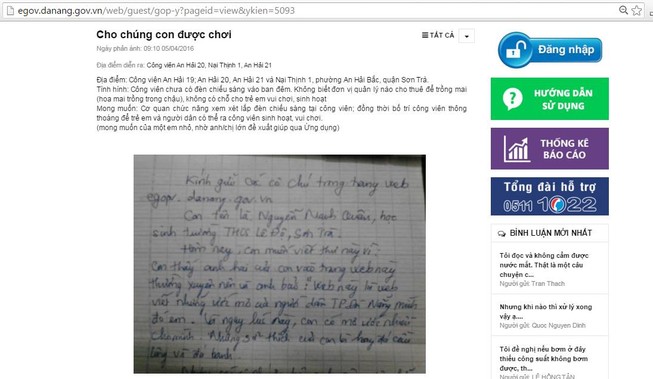 egov.danang.gov.vn/web/guest/gop-y?pageid=view&ykien=5093
Cho chúng con được chơi
TẤT CẢ
Ngày phản ánh: 09:10 05/04/2016
Địa điểm diễn ra: Công viên An Hải 20, Nại Thịnh 1, An Hải 21
Địa điểm: Công viên An Hải 19; An Hải 20, An Hải 21 và Nại Thịnh 1, phường An Hải Bắc, quận Sơn Trà.
Tính hình: Công viên chưa có đèn chiếu sáng vào ban đêm. Không biết đơn vị quản lí nào cho thuê để trồng mai
(hoa mai trồng trong chậu), không có chỗ cho trẻ em vui chơi, sinh hoạt
Mong muốn: Cơ quan chức năng xem xét lắp đèn chiếu sáng tại công viên; đồng thời bố trí công viên thông
thoáng để trẻ em và người dân có thể ra công viên sinh hoạt, vui chơi.
(mong muốn của một em nhỏ, nhờ anh/chị lớn đề xuất giúp qua Ứng dụng)
Kính gửi các cô chú trong trang web
egov.danang.gov.vn
Con tên là Nguyễn Mạnh Quân, học
sinh trường THCS LÊ ĐỘ, Sơn Trà.
Hôm nay, con muốn viết thư này vì:
Con thấy anh hai của con vào trang web này
thường xuyên nên và anh bảo: Web này là web
viết những ước mơ của người dân TP. Đà Nẵng
đó em. Và ngay lúc này, con có mơ ước
cho mình. Những sở thích của con là hay đá cầu
lông và đá banh.
Đăng nhập
HƯỚNG DẪN
SỬ DỤNG
THỐNG KÊ
BÁO CÁO
Tổng đài hỗ trợ
0511 1022
BÌNH LUẬN MỚI NHẤT
Tôi đọc và không cầm được
nước mắt. Thật là một câu
chuyện c...
Người gửi : Tran Thach
Nhưng khi nào thì xử lý xong
vậy ạ....
Người gửi : Quoc Nguyen Dinh
Tôi đề nghị nếu bơm ở đáy
thiếu công suất không bơm
được, th...
Người gửi : LÊ HỒNG TÂN